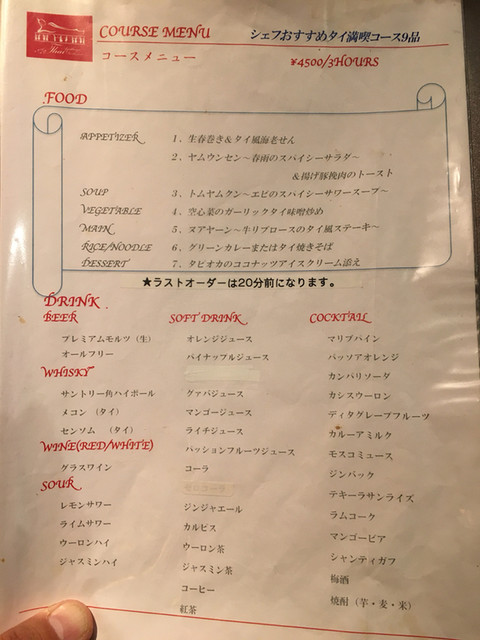 COURSE MENU
シェフおすすめタイ満喫コース9品
コースメニュー
¥4500/3HOURS
FOOD
APPETIZER 1、生春巻き＆タイ風海老せん
2、ヤムウンセン～春雨のスパイシーサラダ～
＆揚げ豚挽肉のトースト
SOUP 3、トムヤムクン～エビのスパイシーサワースープ～
VEGETABLE 4、空心菜のガーリックタイ味噌炒め
MAIN 5、ヌアヤーン～牛リブロースのタイ風ステーキ～
RICE/NOODLE 6、グリーンカレーまたはタイ焼きそば
DESSERT 7、タピオカのココナッツアイスクリーム添え
★ラストオーダーは20分前になります。
DRINK
BEER
プレミアムモルツ（生）
オールフリー
WHISKY
サントリー角ハイボール
メコン（タイ）
センソム（タイ）
WINE(RED/WHITE)
グラスワイン
SOUR
レモンサワー
ライムサワー
ウーロンハイ
ジャスミンハイ
SOFT DRINK
オレンジジュース
パイナップルジュース
グァバジュース
マンゴージュース
ライチジュース
パッションフルーツジュース
コーラ
ジンジャエール
カルピス
ウーロン茶
ジャスミン茶
コーヒー
紅茶
COCKTAIL
マリブパイン
パッソアオレンジ
カンパリソーダ
カシスウーロン
ディタグレープフルーツ
カルーアミルク
モスコミュース
ジンバック
テキーラサンライズ
ラムコーク
マンゴービア
シャンティガフ
梅酒
焼酎（芋・麦・米）